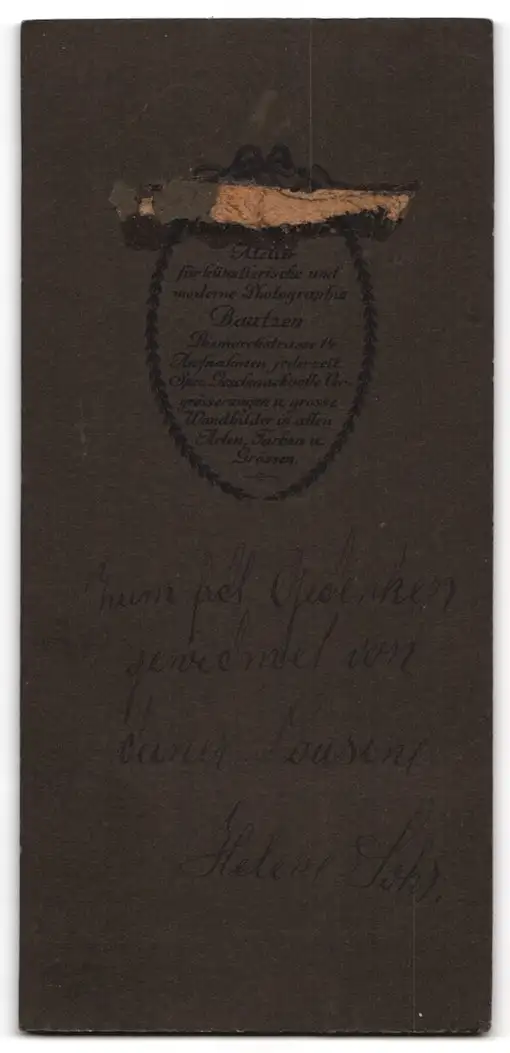 Atelier
für künstlerische und
moderne Photographie
Bautzen
Bismarckstrasse 14
Aufnahmen jederzeit
Spez. Geschmackvolle Ver-
grösserungen u. grosse
Wandbilder in allen
Arten, Farben u.
Grössen.
Zum Gedenken
gewidmet von
Deiner Cousine
Helene